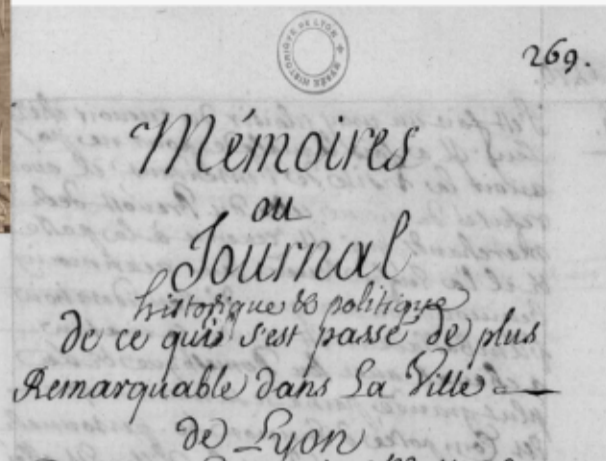 MUSÉE HISTORIQUE DE LYON
269.
Mémoires
ou
Journal
historique & politique
de ce qui s'est passé de plus
Remarquable dans La Ville
de Lyon